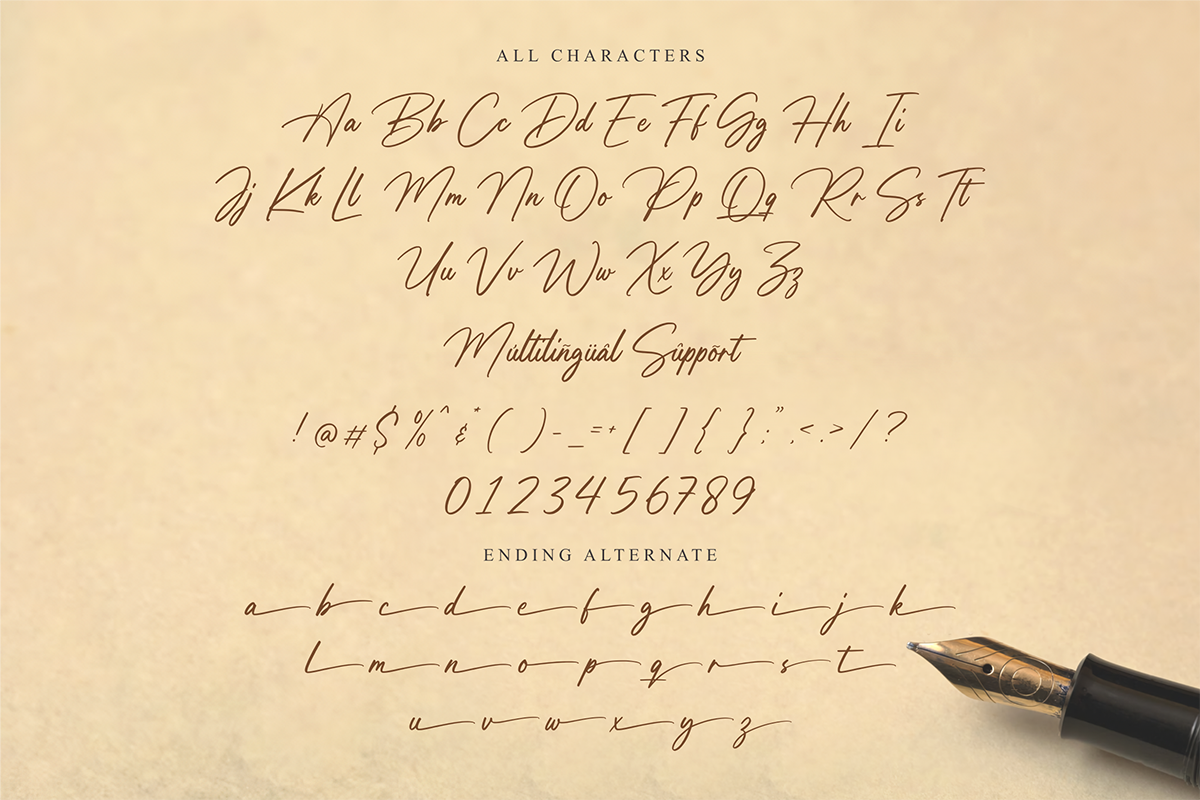 ALL CHARACTERS
Aa Bb Cc Dd Ee Ff Gg Hh Ii
Jj Kk Ll Mm Nn Oo Pp Qq Rr Ss Tt
Uu Vv Ww Xx Yy Zz
Múltiliñgüâl Sûppõrt
! @ # $ % ^ & * ( ) - _ = + [ ] { } ; " , < . > / ?
0 1 2 3 4 5 6 7 8 9
ENDING ALTERNATE
a b c d e f g h i j k
l m n o p q r s t
u v w x y z